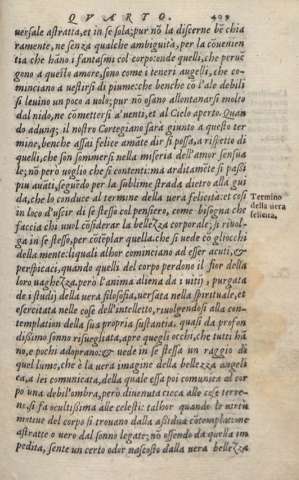 QVARTO. 409
uersale astratta, et in se sola; pur nō la discerne bē chia
ramente, ne senza qualche ambiguita, per la cōuenien
tia che hano i fantasmi col corpo: onde quelli, che peruē
gono a questo amore, sono come i teneri augelli, che co-
minciano a uestirsi di piume: che benche cō l'ale debili
si leuino un poco a uolo; pur nō osano allontanarsi molto
dal nido, ne cōmettersi a'uenti, et al Cielo aperto. Quan
do adunq; il nostro Cortegiano sara giunto a questo ter
mine, benche assai felice amāte dir si possa, a rispetto di
quelli, che son sommersi nella miseria dell'amor sensua
le; nō pero uoglio che si contenti: ma arditamēte si passi
piu auāti, seguēdo per la sublime strada dietro alla gui
da, che lo conduce al termine della uera felicità: et cosi
in loco d'uscir di se stesso col pensiero, come bisogna che
faccia chi uuol cōsiderar la bellezza corporale; si riuol-
ga in se stesso, per cōtēplar quella, che si uede cō gliocchi
della mente: liquali alhor cominciano ad esser acuti, &
perspicaci, quando quelli del corpo perdono il fior della
loro uaghezza, però l'anima aliena da i uitij, purgata
da i studij della uera filosofia, uersata nella spirituale, et
esercitata nelle cose dell'intelletto, riuolgendosi alla con-
templation della sua propria sustantia, quasi da profon
dissimo sonno risuegliata, apre quegli occhi, che tutti hā
no, e pochi adoprano: & uede in se stessa un raggio di
quel lume, che è la uera imagine della bellezza angeli
ca, a lei comunicata, della quale essa poi comunica al cor
po una debil'ombra, però diuenuta cieca alle cose terre-
ne, si fa ocultissima alle celesti: talhor quando le uirtù
motiue del corpo si trouano dalla assidua cōtemplatione
astratte o uero dal sonno legate; nō essendo da quelle im
pedita, sente un certo odor nascosto dalla uera bellezza
Termino
della uera
felicita.